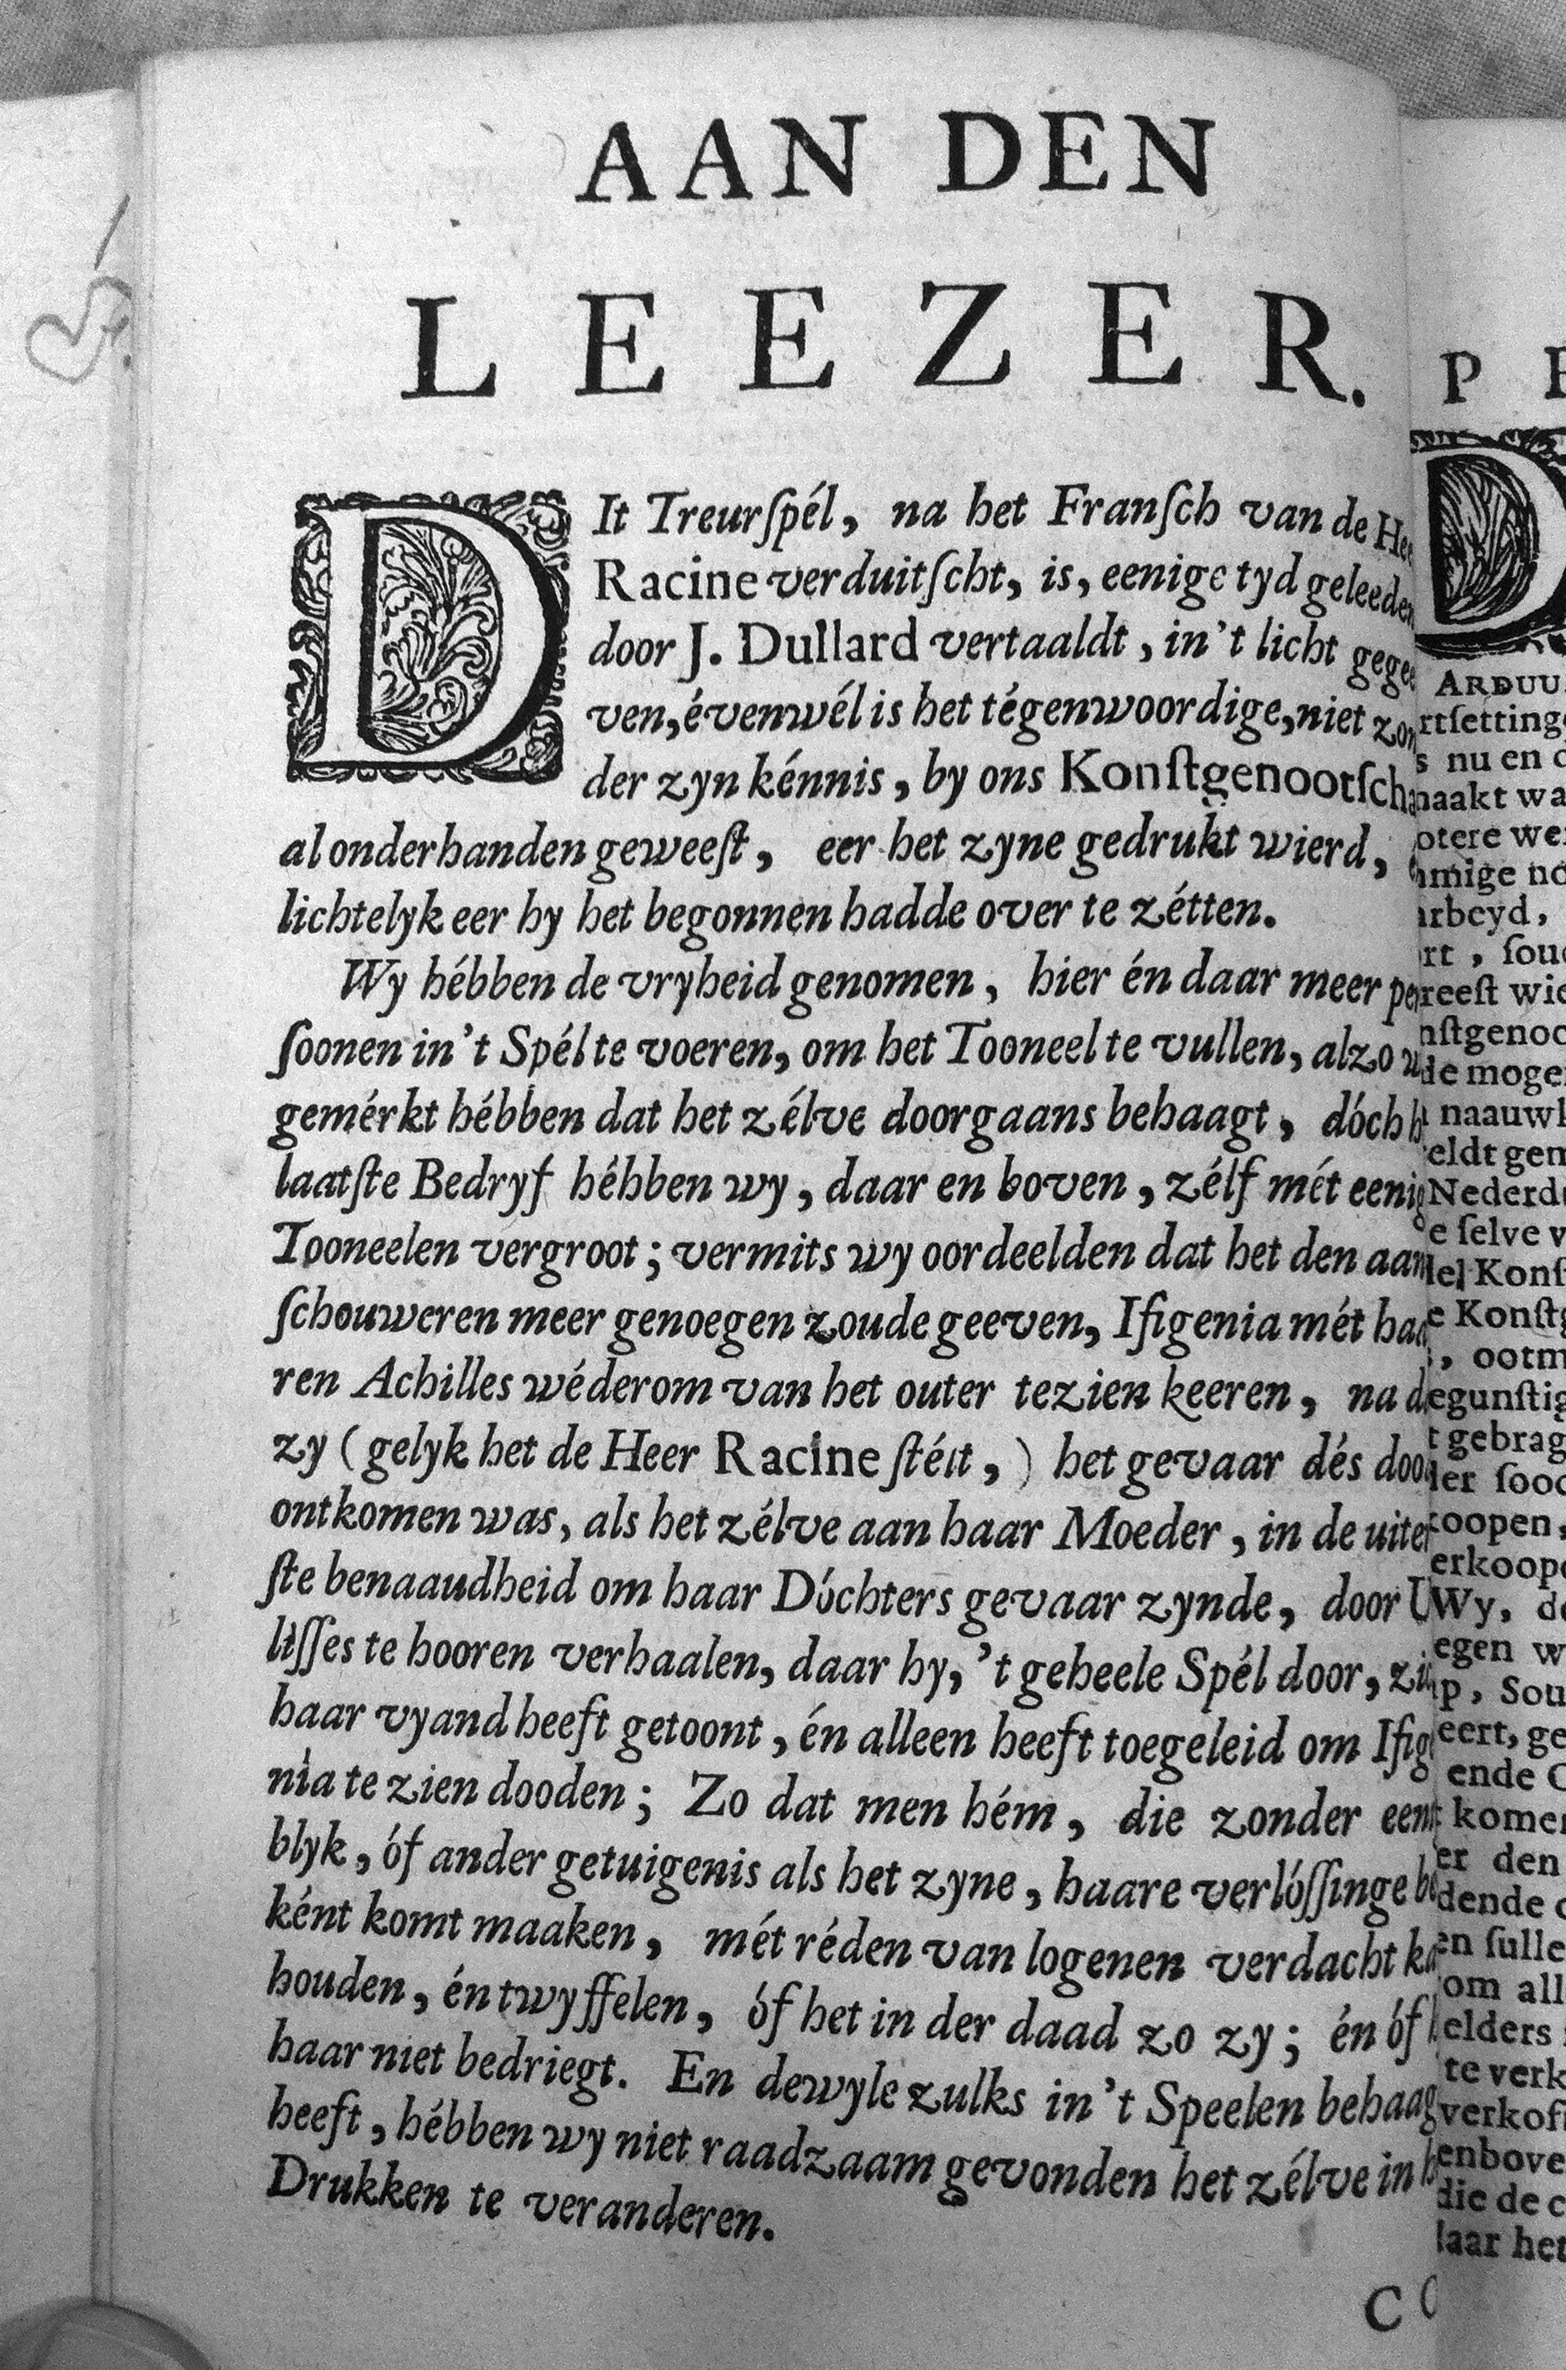 AAN DEN
LEEZER.
DIt Treurſpél, na het Franſch van de
Racine verduitſcht, is, eenige tyd geleeden
door J. Dullard vertaaldt, in't licht gegee
ven, évenwél is het tégenwoordige, niet zon
der zyn kénnis, by ons Konſtgenootſcha
al onderhanden geweeſt, eer het zyne gedrukt wierd,
lichtelyk eer hy het begonnen hadde over te zétten.
Wy hébben de vryheid genomen, hier én daar meer per
ſoonen in't Spél te voeren, om het Tooneel te vullen, alzo
gemérkt hébben dat het zélve doorgaans behaagt, dóch
laatſte Bedryf hébben wy, daar en boven, zélf mét eenig
Tooneelen vergroot; vermits wy oordeelden dat het den aan
ſchouweren meer genoegen zoude geeven, Ifigenia mét haa
ren Achilles wéderom van het outer te zien keeren, na
zy (gelyk het de Heer Racine ſtélt,) het gevaar dés doo
ontkomen was, als het zélve aan haar Moeder, in de uiter
ſte benaaudheid om haar Dóchters gevaar zynde, door U
liſſes te hooren verhaalen, daar hy, 't geheele Spél door,
haar vyand heeft getoont, én alleen heeft toegeleid om Ifig
nia te zien dooden; Zo dat men hém, die zonder een
blyk, óf ander getuigenis als het zyne, haare verlóſſinge be
ként komt maaken, mét réden van logenen verdacht ka
houden, én twyffelen, óf het in der daad zo zy; én óf
haar niet bedriegt. En dewyle zulks in't Speelen behaag
heeft, hébben wy niet raadzaam gevonden het zélve in
Drukken te veranderen.
CO
P
D
ARDUU
rtſetting
s nu en
naakt wa
otere we
mige no
arbeyd,
rt, ſou
reeſt wie
nſtgenoo
de moge
naauwk
eldt gem
Nederd
e ſelve v
del Konſ
e Konſt
, ootm
egunſtig
t gebrag
der ſoo
koopen,
erkoop
Wy, d
egen w
ip, Sou
eert, ge
ende
komen
er den
dende
en ſulle
om all
elders
te verk
verkof
enbove
die de
laar het